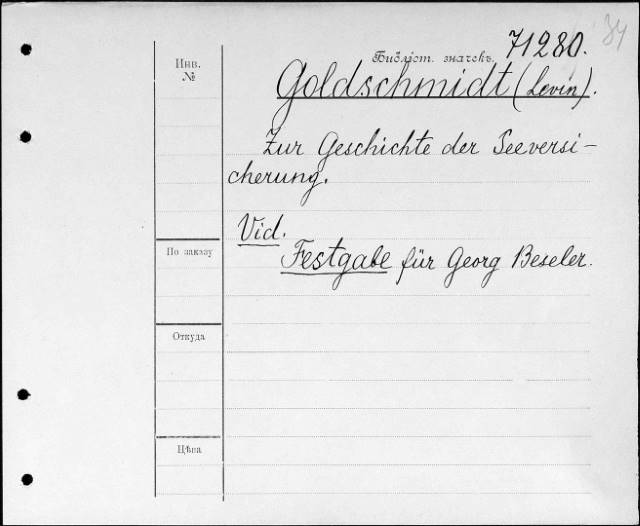 34
71280.
Библіот. значекъ.
Инв.
№
Goldschmidt (Levin).
Zur Geschichte der Seeversi-
cherung.
Vid.
Festgabe für Georg Beseler.
По заказу
Откуда
Цѣна